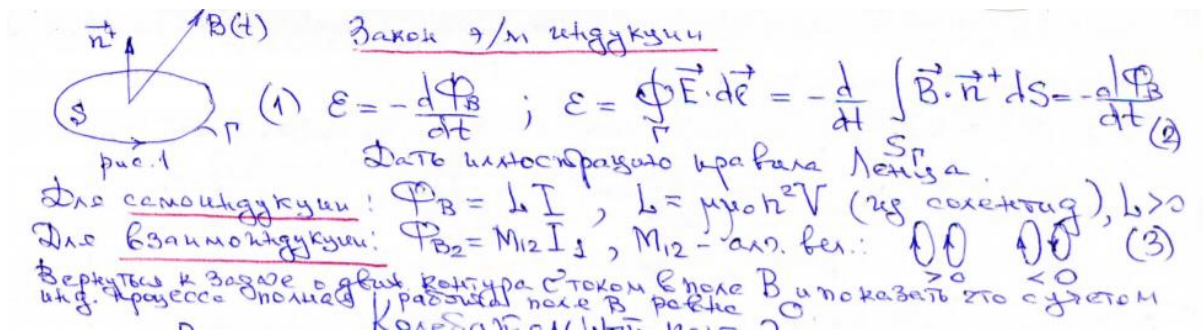 n⁺ B(t) Закон э/м индукции
S Г (1) ℰ = - dΦ_B/dt ; ℰ = ∮_Г E⃗·dℓ⃗ = - d/dt ∫_{S_Г} B⃗·n⃗⁺ dS = - dΦ_B/dt (2)
рис. 1 Дать иллюстрацию правила Ленца.
Для самоиндукции: Φ_B = LI, L = μμ₀n²V (из соленоид), L>0
Для взаимоиндукции: Φ_B₂ = M₁₂I₁, M₁₂ - алг. вел.: >0 <0 (3)
Вернуться к задаче о движ. контура с током в поле B и показать что с учетом
инд. процесса полная работа поля B равна 0